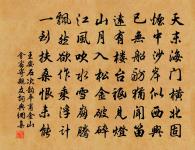 天末海門橫北固
煙中沙岸似西興
已無船舫猶聞笛
遠有樓台只見燈
山月入松金破碎
江風吹水雪崩騰
飄然欲作乘桴計
一到扶桑恨未能
王安石次韻平甫金山
會宿寄親友詞典網